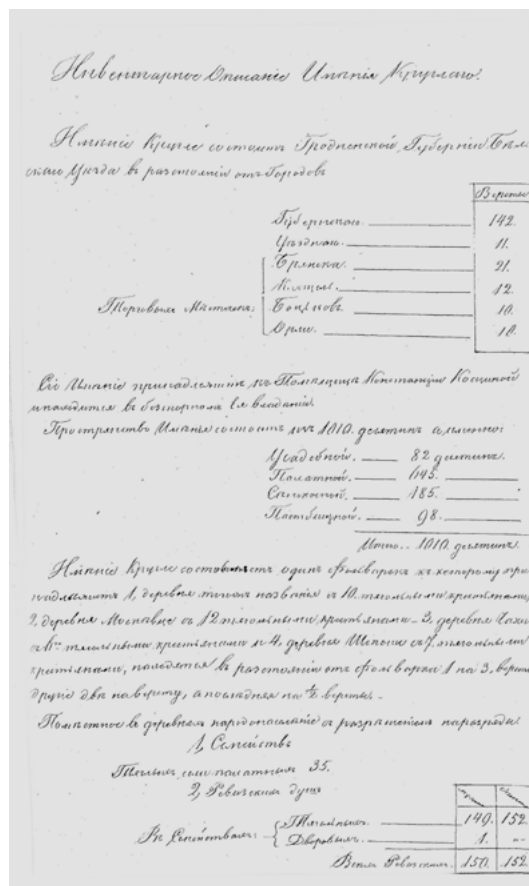 Инвентарное Описаніе Имѣнія Круглаго.
Имѣніе Круглe состоитъ Гродненской Губерніи Бѣль
скаго Уѣзда въ разстояніи отъ Городовъ
Версты
Губернскаго. 142.
Уѣзднаго. 11.
Брянска. 21.
12.
Торговыхъ Мѣстечекъ: Боцьковъ. 10.
Орли. 10.
Сіе Имѣніе принадлежитъ Помѣщицѣ Констанціи
и находится въ безспорномъ Ея владѣніи.
Пространство Имѣнья состоитъ изъ 1010. десятинъ а именно:
Усадебной. 82 десятинъ.
Пахатной. 645.
Сѣнокосной. 185.
Пастбищной. 98.
Итого.. 1010. десятинъ.
Имѣніе Круглe составляетъ одинъ фольваркъ къ которому при
надлежитъ 1, деревня тогожъ названія съ 10. тяглыми крестьянами,
2, деревня съ 12 тяглыми крестьянами – 3, деревня
тяглыми крестьянами и 4, деревня съ 7. тяглыми
крестьянами, находятся въ разстояніи отъ фольварка 1 на 3. версты
другіе двѣ на версту, а послѣдняя на ½ версты. –
въ деревняхъ народонаселеніе съ
1, Семействъ
Тяглыхъ 35.
2, Ревизскихъ душъ
Въ Семействахъ: Тяглыхъ. 149. 152.
Дворовыхъ. 1. --
Всего Ревизскихъ. 150. 152.